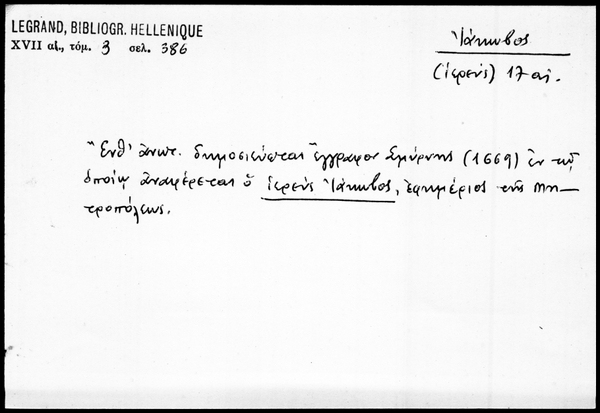 LEGRAND, BIBLIOGR. HELLENIQUE
XVII αἰ., τόμ. 3 σελ. 386
Ἰάκωβος
(ἱερεύς) 17 αἰ.
Ἔνθ' ἀνωτ. δημοσιεύεται ἔγγραφον Σμύρνης (1669) ἐν τῷ
ὁποίῳ ἀναφέρεται ὁ ἱερεύς Ἰάκωβος, ἐφημέριος τῆς Μη-
τροπόλεως.